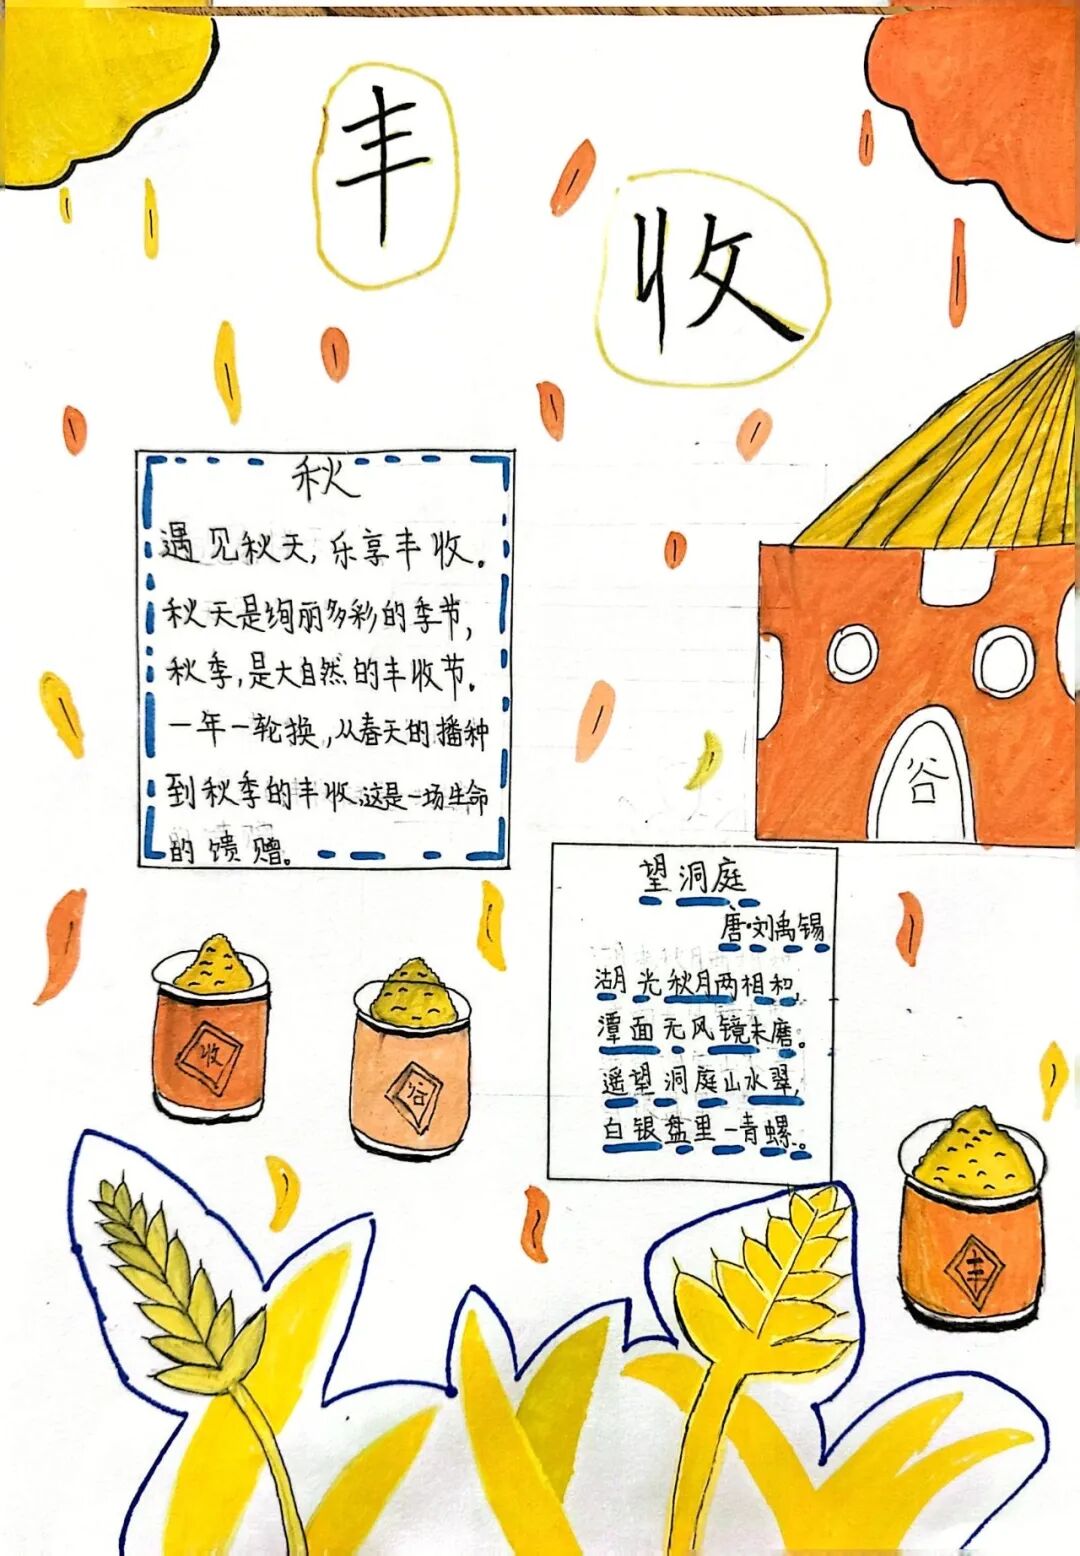 丰
收
秋
遇见秋天,乐享丰收。
秋天是绚丽多彩的季节,
秋季,是大自然的丰收节。
一年一轮换,从春天的播种
到秋季的丰收,这是一场生命
的馈赠。
谷
望洞庭
唐·刘禹锡
湖光秋月两相和,
潭面无风镜未磨。
遥望洞庭山水翠,
白银盘里一青螺。
收
谷
丰